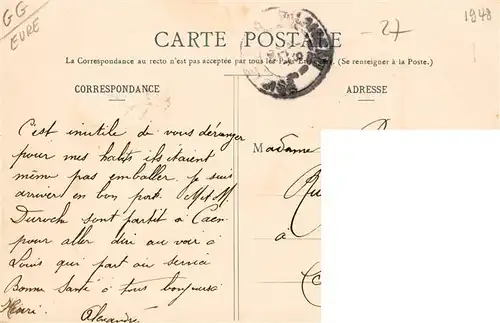 GG
EURE
27
1948
CARTE POSTALE
La Correspondance au recto n'est pas acceptée par tous les Pays Etrangers. (Se renseigner à la Poste.)
CORRESPONDANCE
ADRESSE
C'est inutile de vous déranger
pour mes habits ils étaient
même pas emballer. Je suis
arriver en bon port. M et M.
Duroch sont partit à Caen
pour aller dire au voir à
Louis qui part au service
Bonne Santé à tous bonjours
Henri. Alexandre
Madame
Ru
à